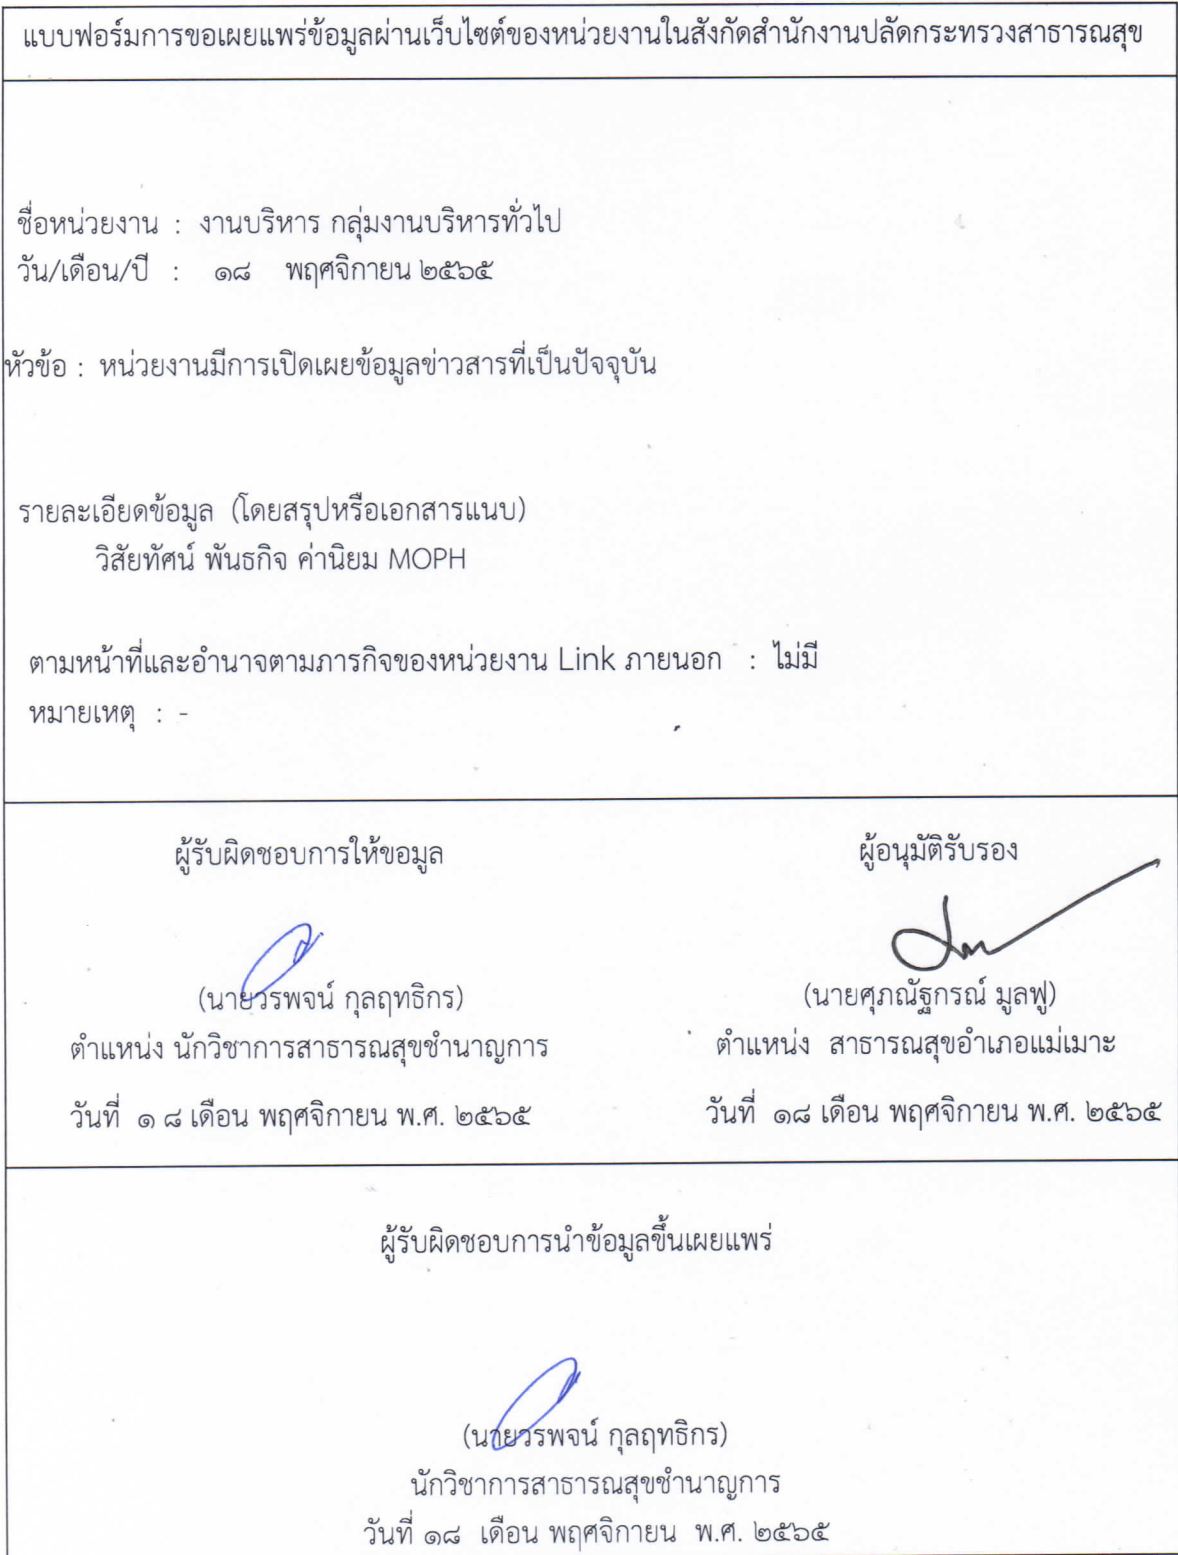 แบบฟอร์มการขอเผยแพร่ข้อมูลผ่านเว็บไซต์ของหน่วยงานในสังกัดสำนักงานปลัดกระทรวงสาธารณสุข
ชื่อหน่วยงาน : งานบริหาร กลุ่มงานบริหารทั่วไป
วัน/เดือน/ปี : ๑๘ พฤศจิกายน ๒๕๖๕
หัวข้อ : หน่วยงานมีการเปิดเผยข้อมูลข่าวสารที่เป็นปัจจุบัน
รายละเอียดข้อมูล (โดยสรุปหรือเอกสารแนบ)
วิสัยทัศน์ พันธกิจ ค่านิยม MOPH
ตามหน้าที่และอำนาจตามภารกิจของหน่วยงาน Link ภายนอก : ไม่มี
หมายเหตุ : -
ผู้รับผิดชอบการให้ขอมูล
(นายวรพจน์ กุลฤทธิกร)
ตำแหน่ง นักวิชาการสาธารณสุขชำนาญการ
วันที่ ๑ ๘ เดือน พฤศจิกายน พ.ศ. ๒๕๖๕
ผู้อนุมัติรับรอง
(นายศุภณัฐกรณ์ มูลฟู)
ตำแหน่ง สาธารณสุขอำเภอแม่เมาะ
วันที่ ๑๘ เดือน พฤศจิกายน พ.ศ. ๒๕๖๕
ผู้รับผิดชอบการนำข้อมูลขึ้นเผยแพร่
(นายวรพจน์ กุลฤทธิกร)
นักวิชาการสาธารณสุขชำนาญการ
วันที่ ๑๘ เดือน พฤศจิกายน พ.ศ. ๒๕๖๕